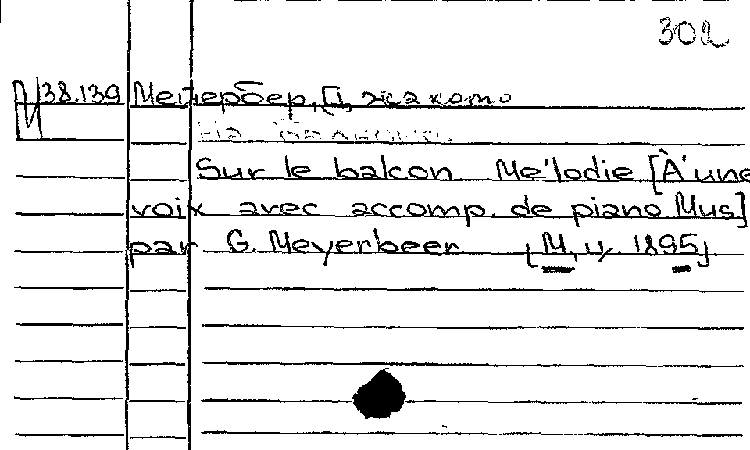 302
И 38.139 Мейербер, Джакомо
На балконе.
Sur le balcon Mélodie [À une
voix avec accomp. de piano Mus]
par G. Meyerbeer [М, ц. 1895]